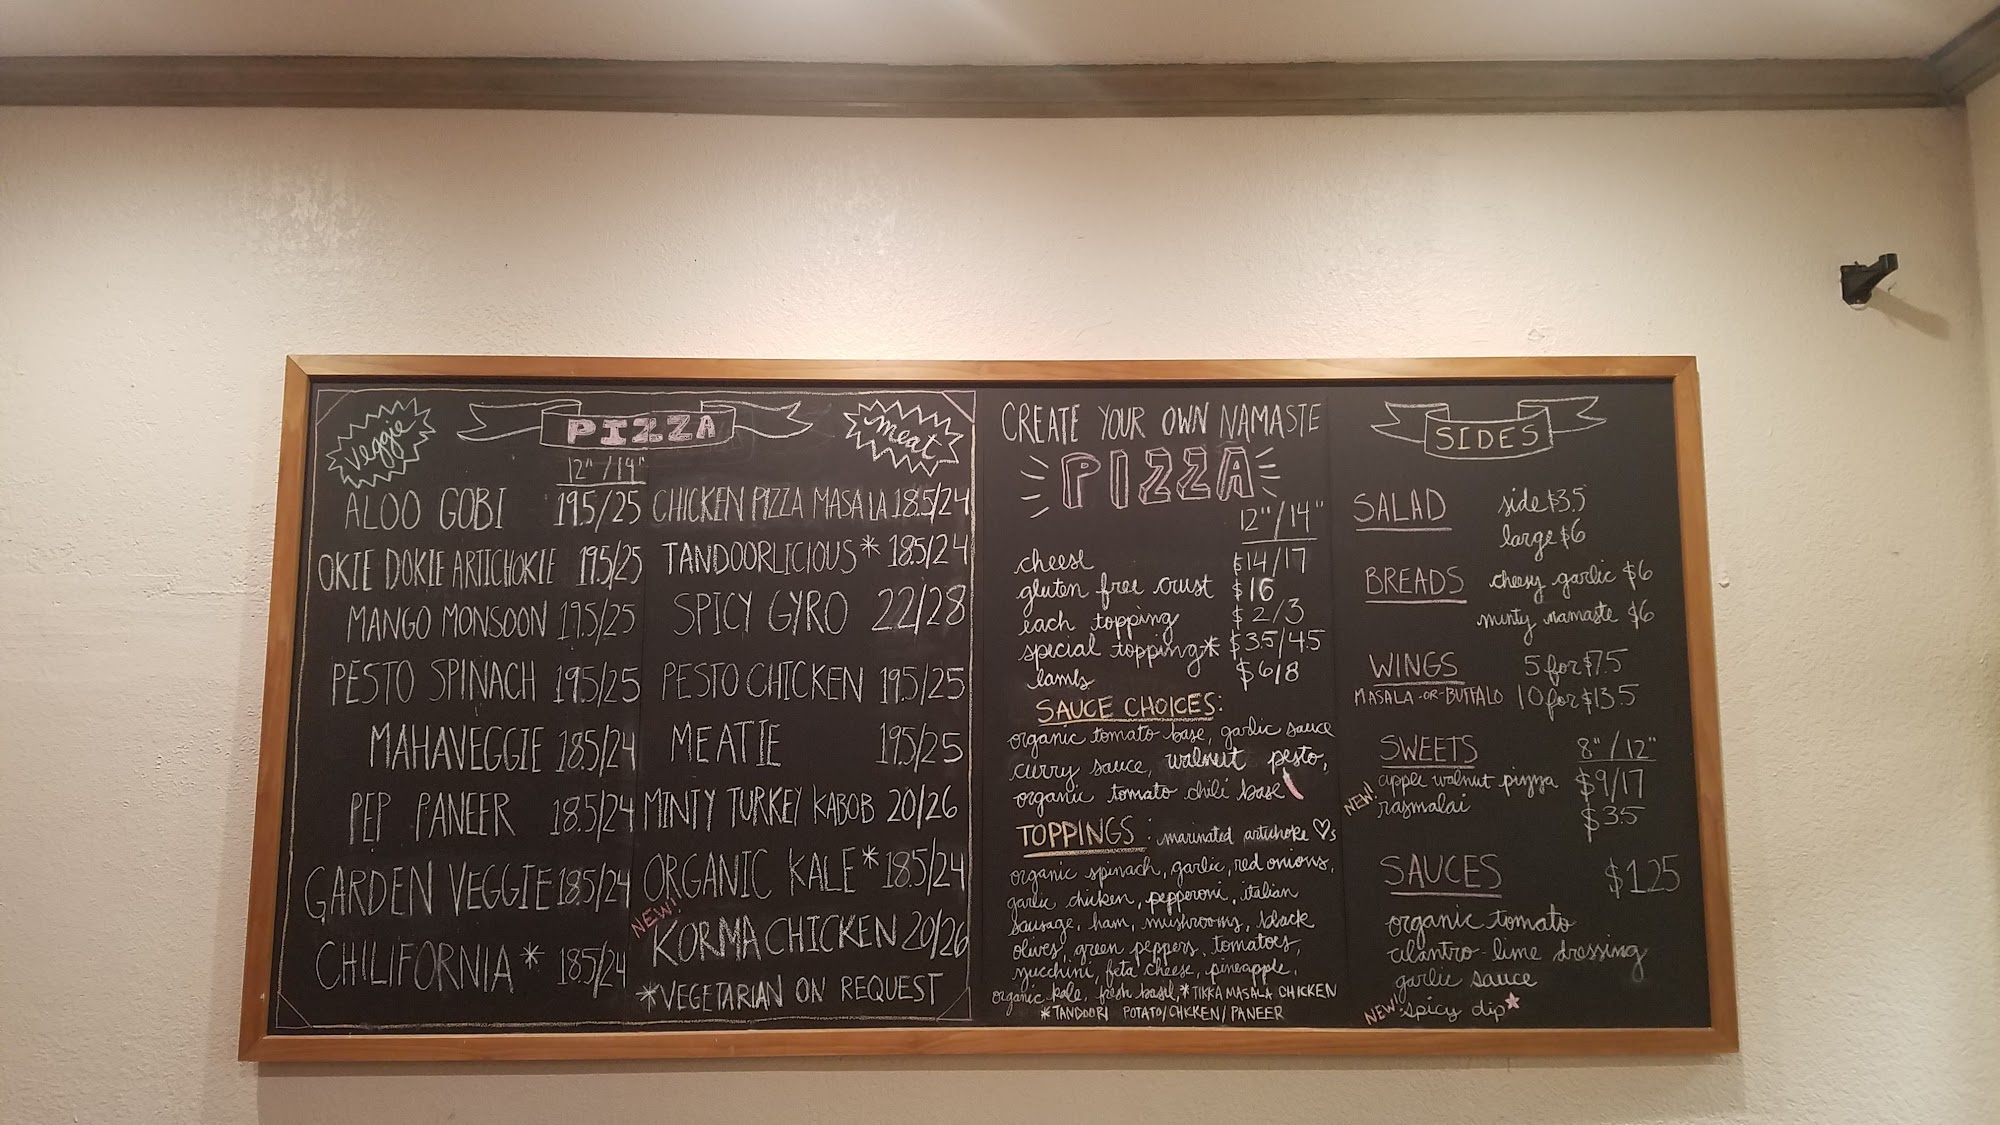 veggie
PIZZA
meat
12"/14"
ALOO GOBI 19.5/25
OKIE DOKIE ARTICHOKIE 19.5/25
MANGO MONSOON 19.5/25
PESTO SPINACH 19.5/25
MAHAVEGGIE 18.5/24
PEP PANEER 18.5/24
GARDEN VEGGIE 18.5/24
CHILIFORNIA* 18.5/24
CHICKEN PIZZA MASALA 18.5/24
TANDOORLICIOUS* 18.5/24
SPICY GYRO 22/28
PESTO CHICKEN 19.5/25
MEATIE 19.5/25
MINTY TURKEY KABOB 20/26
ORGANIC KALE* 18.5/24
NEW!
KORMA CHICKEN 20/26
*VEGETARIAN ON REQUEST
CREATE YOUR OWN NAMASTE
PIZZA
12"/14"
cheese $14/17
gluten free crust $16
each topping $2/3
special topping* $3.5/4.5
lamb $6/8
SAUCE CHOICES:
organic tomato base, garlic sauce
curry sauce, walnut pesto,
organic tomato chili base
TOPPINGS: marinated artichoke ♡s
organic spinach, garlic, red onions,
garlic chicken, pepperoni, italian
sausage, ham, mushrooms, black
olives, green peppers, tomatoes,
zucchini, feta cheese, pineapple,
organic kale, fresh basil, *TIKKA MASALA CHICKEN
*TANDOORI POTATO/CHICKEN/PANEER
SIDES
SALAD side $3.5
large $6
BREADS cheesy garlic $6
minty namaste $6
WINGS 5 for $7.5
MASALA-OR-BUFFALO 10 for $13.5
SWEETS 8"/12"
apple walnut pizza $9/17
NEW! rasmalai $3.5
SAUCES $1.25
organic tomato
cilantro-lime dressing
garlic sauce
NEW! spicy dip